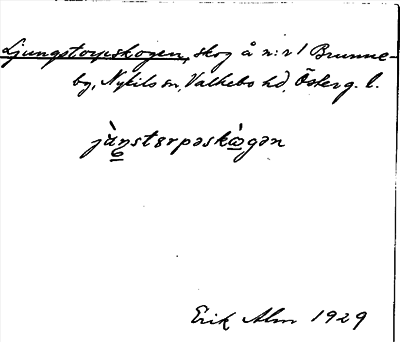 Ljungstorpskogen, skog å n:r 1 Brunne-
by, Nykils sn, Valkebo hd, Österg. l.
jùŋstɛrpəskògən
Erik Alm 1929